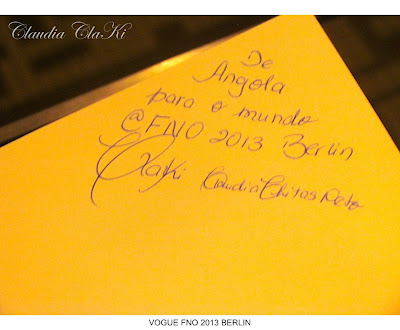 Claudia ClaKi
De
Angola
para o mundo
@FNO 2013 Berlin
ClaKi Claudia Chitas
VOGUE FNO 2013 BERLIN